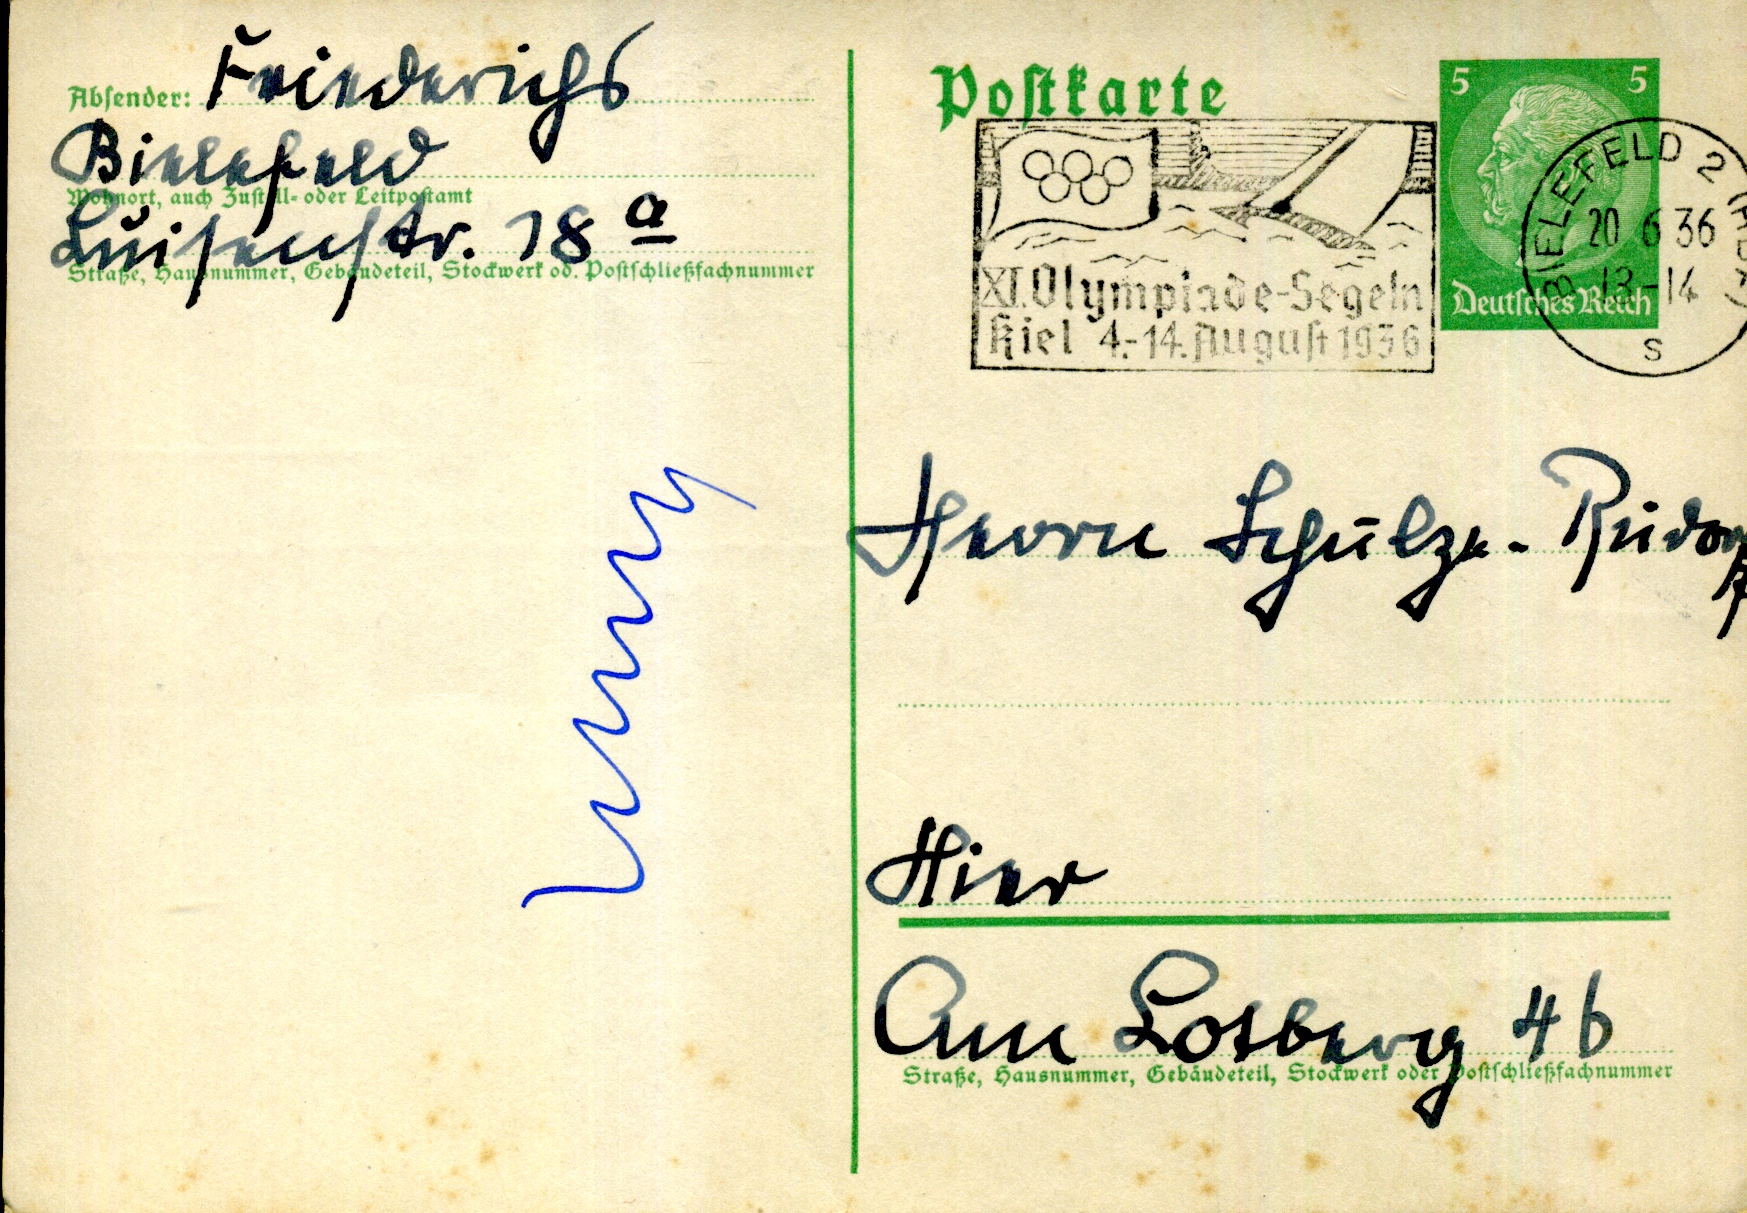 Absender: Friederichs
Bielefeld
Wohnort, auch Zustell- oder Leitpostamt
Luisenstr. 18 a
Straße, Hausnummer, Gebäudeteil, Stockwerk od. Postschließfachnummer
Postkarte
5 5
Deutsches Reich
BIELEFELD 2
20 6 36
13-14
s
XI. Olympiade-Segeln
Kiel 4.-14. August 1936
Herrn Schulze-Rudorf
Hier
Am Lotberg 46
Straße, Hausnummer, Gebäudeteil, Stockwerk oder Postschließfachnummer